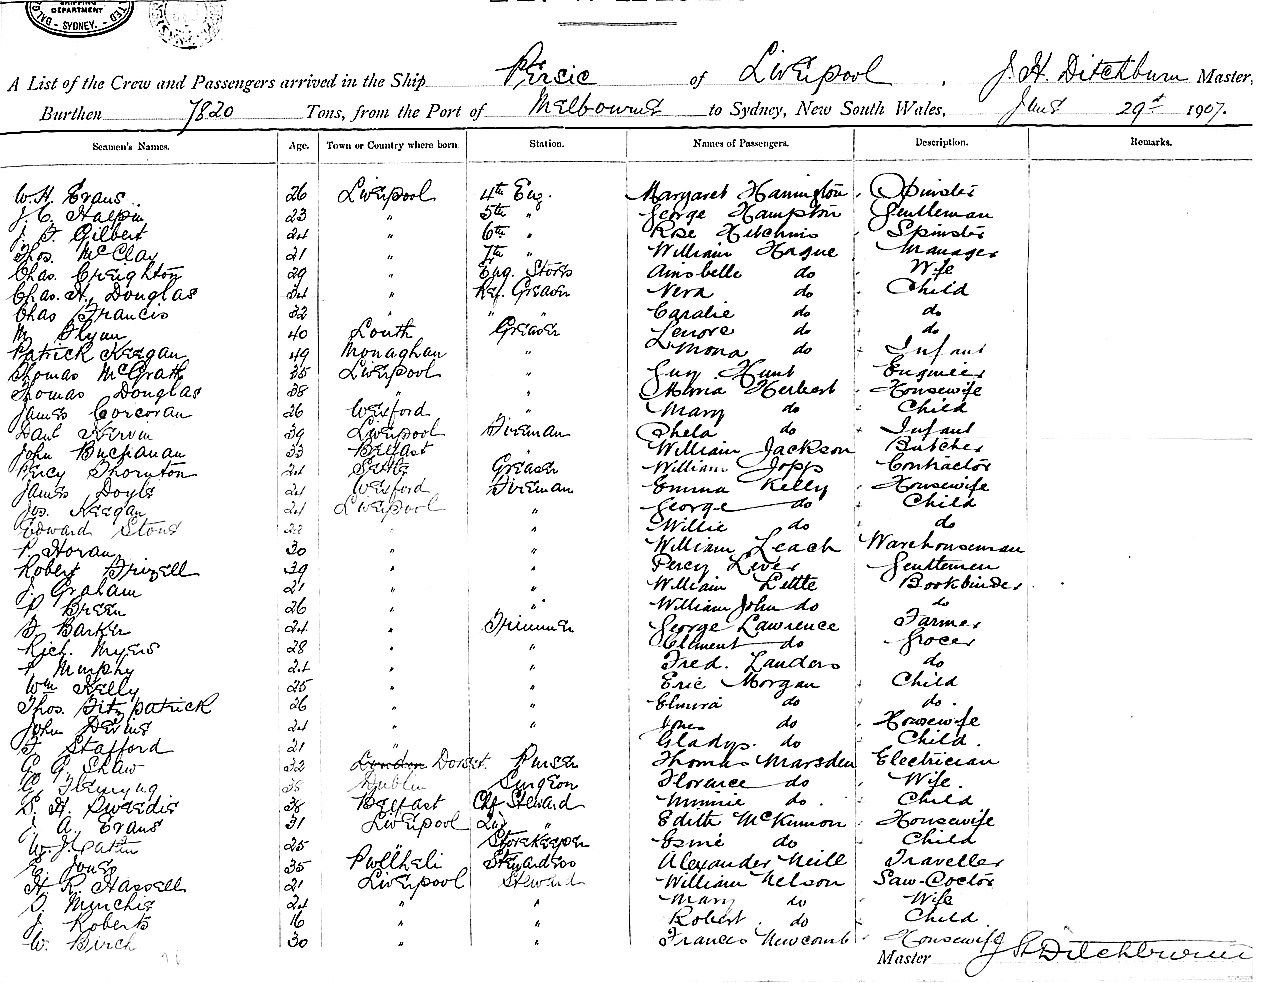 SHIPPING
DEPARTMENT
- SYDNEY. -
A List of the Crew and Passengers arrived in the Ship Persic of Liverpool . J. H. Ditchburn Master,
Burthen 7820 Tons, from the Port of Melbourne to Sydney, New South Wales, 29 1907.
Seamen's Names. Age. Town or Country where born. Station. Names of Passengers. Description. Remarks.
W. H. Evans 26 Liverpool 4th Eng. Margaret Hannington Spinster
J. C. Halpin 23 " 5th " George Hampton Gentleman
J. F. Gilbert 24 " 6th " Rose Spinster
Thos. McClay 21 " 7th " William Hague Manager
Chas. Creighton 29 " Eng. Stors do Wife
Chas. H. Douglas 34 " Ref. Greaser Vera do Child
Chas Francis 32 " " " do do
M. Flynn 40 Louth Greaser Lenore do do
Patrick Keegan 49 Monaghan " Mona do Infant
Thomas McGrath 35 Liverpool " Guy Hunt Engineer
Thomas Douglas 38 " " Herbert Housewife
James Corcoran 26 Wexford " Mary do Child
Kervin 39 Liverpool Fireman do Infant
John Buchanan 33 Belfast " William Jackson Butcher
Percy Thornton 24 Greaser William Jopp Contractor
James Doyle 21 Wexford Fireman Emma Kelly Housewife
Jos. Keegan 21 Liverpool " George do Child
Edward Stone 22 " " Willie do do
P. Horan 30 " " William Leach Warehouseman
Robert Frizell 39 " " Percy Gentlemen
J. Graham 21 " " William Little Bookbinder
P. Breen 26 " " William John do do
F. Barker 24 " Trimmer George Lawrence Farmer
Rich. Myers 28 " " Clement do Grocer
P. Murphy 24 " " Fred. Landers do
Wm Kelly 25 " " Eric Morgan Child
Thos. Fitzpatrick 26 " " Elmira do do.
John 24 " " do Housewife
F. Stafford 21 " " Gladys. do Child.
C. G. Shaw 32 London Dorset. Purser Thomas Marsden Electrician
Dublin Surgeon Florance do Wife.
38 Belfast Chf Steward Minnie do. Child
J. A. Evans 31 Liverpool 2nd " Edith McKinnon Housewife
W. J. 25 " Storekeeper Esmé do Child
E. Jones 35 Pwllheli Stewardess Alexander Neill Traveller
H. R. Hassell 21 Liverpool Steward William Nelson Saw-Doctor
24 " " Mary do Wife
J. Roberts 16 " " Robert. do Child
W. Birch 30 " " Frances Newcomb Housewife
Master J. H. Ditchburn